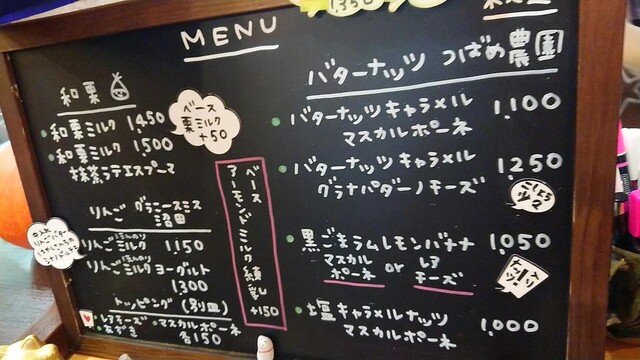 MENU
和栗
和栗ミルク 1,450
和栗ミルク 1,500
抹茶ラテエスプーマ
ベース
栗ミルク
+50
りんご グラニースミス
沼田
りんごミルク 1,150
りんごミルク ヨーグルト
1300
トッピング (別皿)
レアチーズ・マスカルポーネ
あずき 各150
ベース
アーモンドミルク練乳
+150
バターナッツ つばめ農園
バターナッツキャラメル 1,100
マスカルポーネ
バターナッツキャラメル 1250
グラナパダーノチーズ
黒ごまラムレモンバナナ 1,050
マスカルポーネ or レアチーズ
塩キャラメルナッツ 1,000
マスカルポーネ